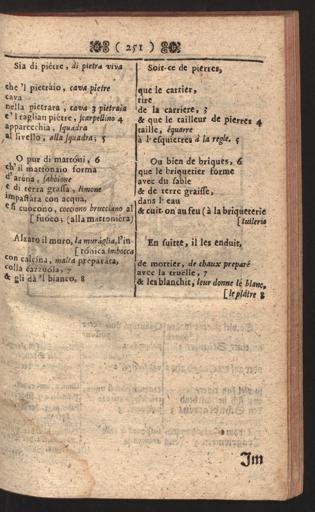 ( 251 )
Sia di piétre, di pietra viva
che 'l pietràio, cava pietre
cava
nella pietrara, cava 3 pietraia
e'l taglian piètre, scarpellino 4
apparecchia, squadra
al livello, alla squadra, 5
O pur di mattóni, 6
ch'il mattonaio forma
d'aréna, sabbione
e di terra grassa, limone
impastàra con acqua,
e si cuócono, cocçono brucciano al
[ fuoco; (alla mattoniéra)
Alzato il muro, la muráglia, l'in-
[ tónica imbocca
con calcina, malta preparàta,
colla cazzuóla, 7
& gli dà 'l bianco, 8
Soit-ce de pierres,
que le cartier,
tire
de la carriere, 3
& que le tailleur de pierres 4
taille, équarre
à l'esquierres à la regle, 5
Ou bien de briques, 6
que le briquetier forme
avec du sable
& de terre graisse,
dans l'eau
& cuit on au feu (à la briqueterie
[ tuilerie
En suitte, il les enduit,
de mortier, de chaux preparé
avec la truelle, 7
& les blanchit, leur donne le blanc,
[ le plâtre 8
Im